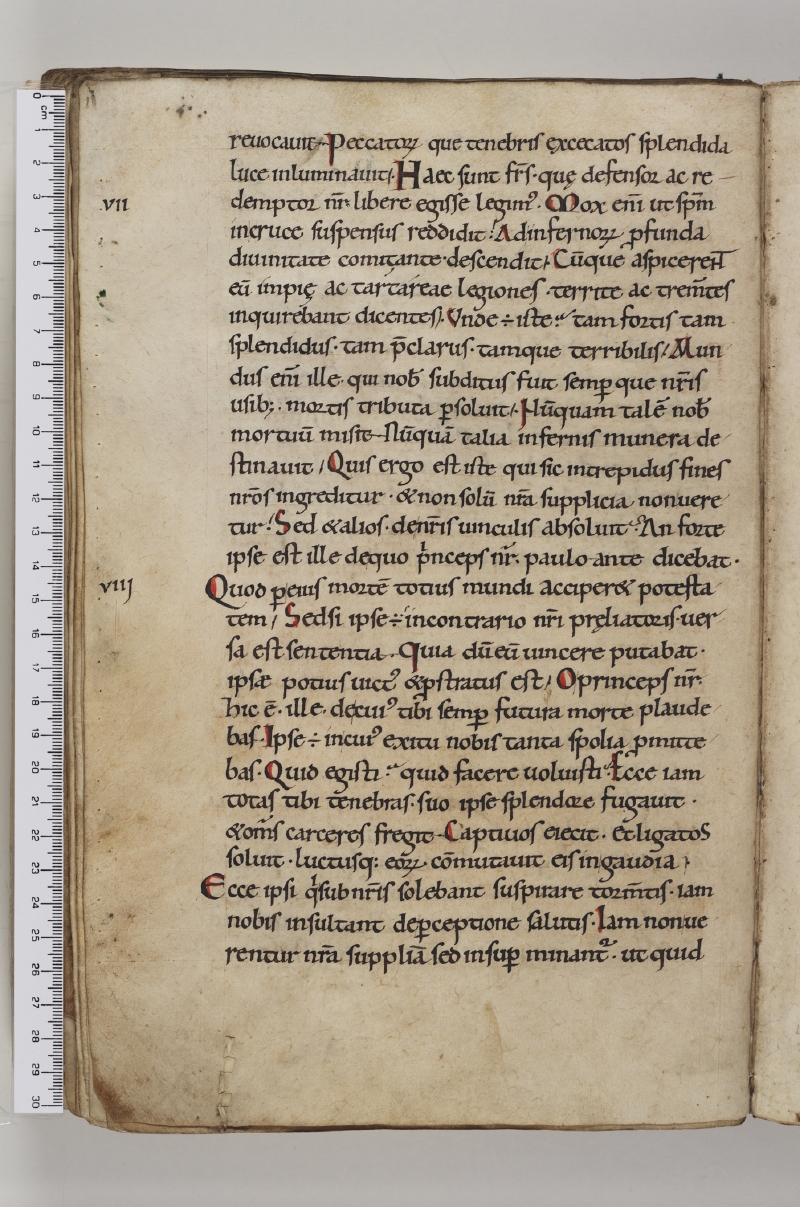 reuocauit. Peccatoꝝ que tenebris excecatos splendida
luce inluminauit. Haec sunt fr̄s. quę defensor ac re
vii demptor nr̄. libere egisse legim᷒. Mox eni᷒ ut sp̄m
incruce suspensus reddidit. Adinfernoꝝ ꝓfunda
diuinitate comitante. descendit. Cūque aspicerent
eū impię ac tartareae legiones. territe ac trem̄tes
inquirebant dicentes. Vnde ÷ iste. tam fortis tam
splendidus. tam p̄clarus. tamque terribilis. Mun
dus eni᷒ ille. qui nob̄ subditus fuit semꝑ que nr̄is
usib;. mortis tributa ꝑsoluit. Nūquam talē nob̄
mortuū misit. Nūquā talia infernis munera de
stinauit. Quis ergo est iste qui sic intrepidus fines
nr̄os ingreditur. & non solū nr̄a supplicia nonuere
tur. Sed & alios. denr̄is uinculis absoluit. An forte
ipse est ille dequo p̄nceps nr̄. paulo ante dicebat.
viij Quod ꝑeius mortē totius mundi acciper& potesta
tem. Sedsi ipse ÷ incontrario nr̄i pręliatoris. uer
sa est sententia. Quia dū eū uincere putabat.
ipsæ potius uict᷒ & ꝓstratus est. O princeps nr̄.
hic ē. ille. decui᷒ tibi semꝑ futura morte plaude
bas. Ipse ÷ incui᷒ exitu nobis tanta spolia ꝓmitte
bas. Quid egisti. quid facere uoluisti. Ecce iam
totas tibi tenebras. suo ipse splendore fugauit.
& om̄s carceres fregit. Captiuos eiecit. Et ligatos
soluit. luctusq: eoꝝ. cōmutauit eis ingaudia.
Ecce ipsi q̇ sub nr̄is solebant suspirare torm̄tis. iam
nobis insultant deꝑceptione salutis. Iam nonue
rentur nr̄a suppliā sed insuꝑ minant᷑. ut quid